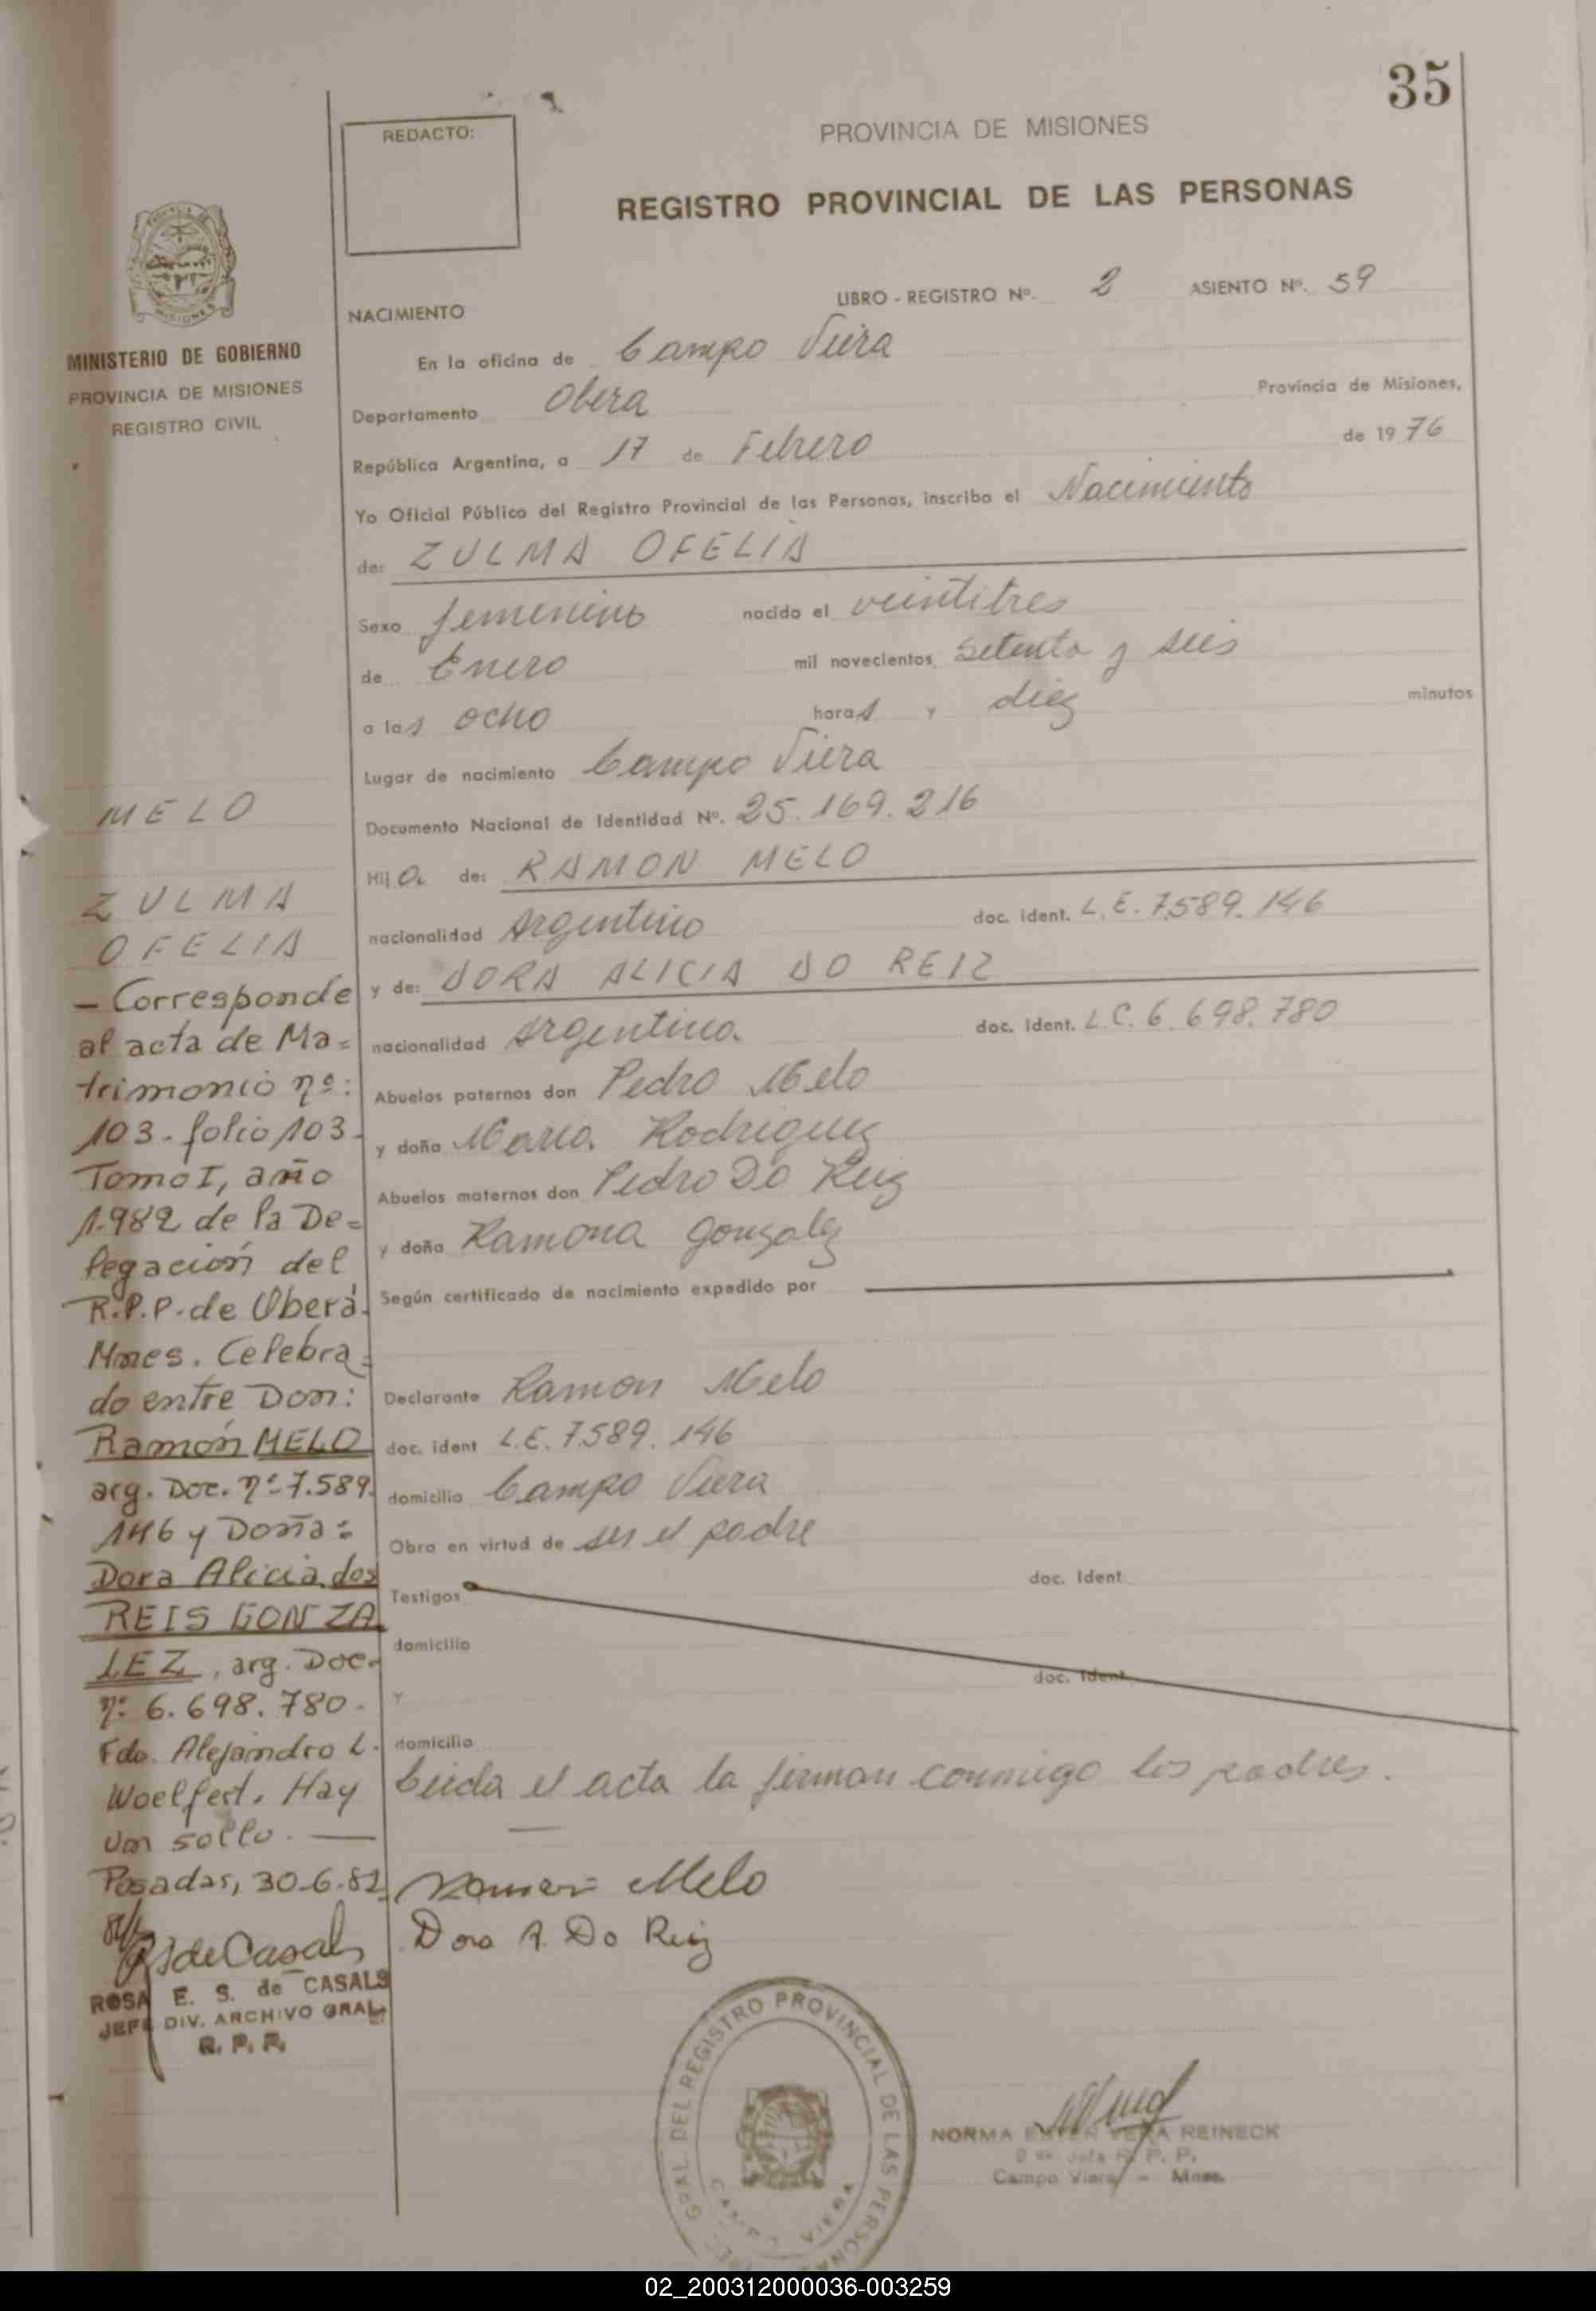 35
REDACTO:
PROVINCIA DE MISIONES
REGISTRO PROVINCIAL DE LAS PERSONAS
MINISTERIO DE GOBIERNO
PROVINCIA DE MISIONES
REGISTRO CIVIL
LIBRO - REGISTRO Nº. 2 ASIENTO Nº. 59
NACIMIENTO
En la oficina de Campo Viera
Departamento Obera Provincia de Misiones,
República Argentina, a 17 de Febrero de 1976
Yo Oficial Público del Registro Provincial de las Personas, inscribo el Nacimiento
de: ZULMA OFELIA
Sexo femenino nacido el veintitres
de Enero mil novecientos setenta y seis
a las ocho horas y diez minutos
Lugar de nacimiento Campo Viera
Documento Nacional de Identidad Nº. 25.169.216
Hija de: RAMON MELO
nacionalidad Argentino doc. ident. L.E. 7.589.146
y de: DORA ALICIA DO REIZ
nacionalidad Argentina doc. ident. L.C. 6.698.780
Abuelos paternos don Pedro Melo
y doña Maria Rodriguez
Abuelos maternos don Pedro Do Reiz
y doña Ramona Gonzalez
Según certificado de nacimiento expedido por
Declarante Ramon Melo
doc. ident L.E. 7.589.146
domicilio Campo Viera
Obra en virtud de ser el padre
Testigos doc. ident
domicilio
doc. ident
y
domicilio
Leida el acta la firman conmigo los padres.
Ramon Melo
Dora A. Do Reiz
MELO
ZULMA
OFELIA
- Corresponde
al acta de Ma=
trimonio nº:
103-folio 103-
Tomo I, año
1.982 de la De=
legación del
R.P.P. de Oberá-
Mnes. Celebra=
do entre Don:
Ramón MELO
arg. Doc. nº 7.589.
146 y Doña:
Dora Alicia dos
REIS GONZA
LEZ, arg. Doc.
nº 6.698.780-
Fdo. Alejandro L.
Woelfert. Hay
un sello.
Posadas, 30-6-82
RSdeCasals
ROSA E. S. de CASALS
JEFE DIV. ARCHIVO GRAL.
R. P. P.
GRAL. DEL REGISTRO PROVINCIAL DE LAS PERSONAS
CAMPO VIERA
NORMA ESTER VERA REINECK
R. P. P.
Campo Viera - Mnes.
02_200312000036-003259